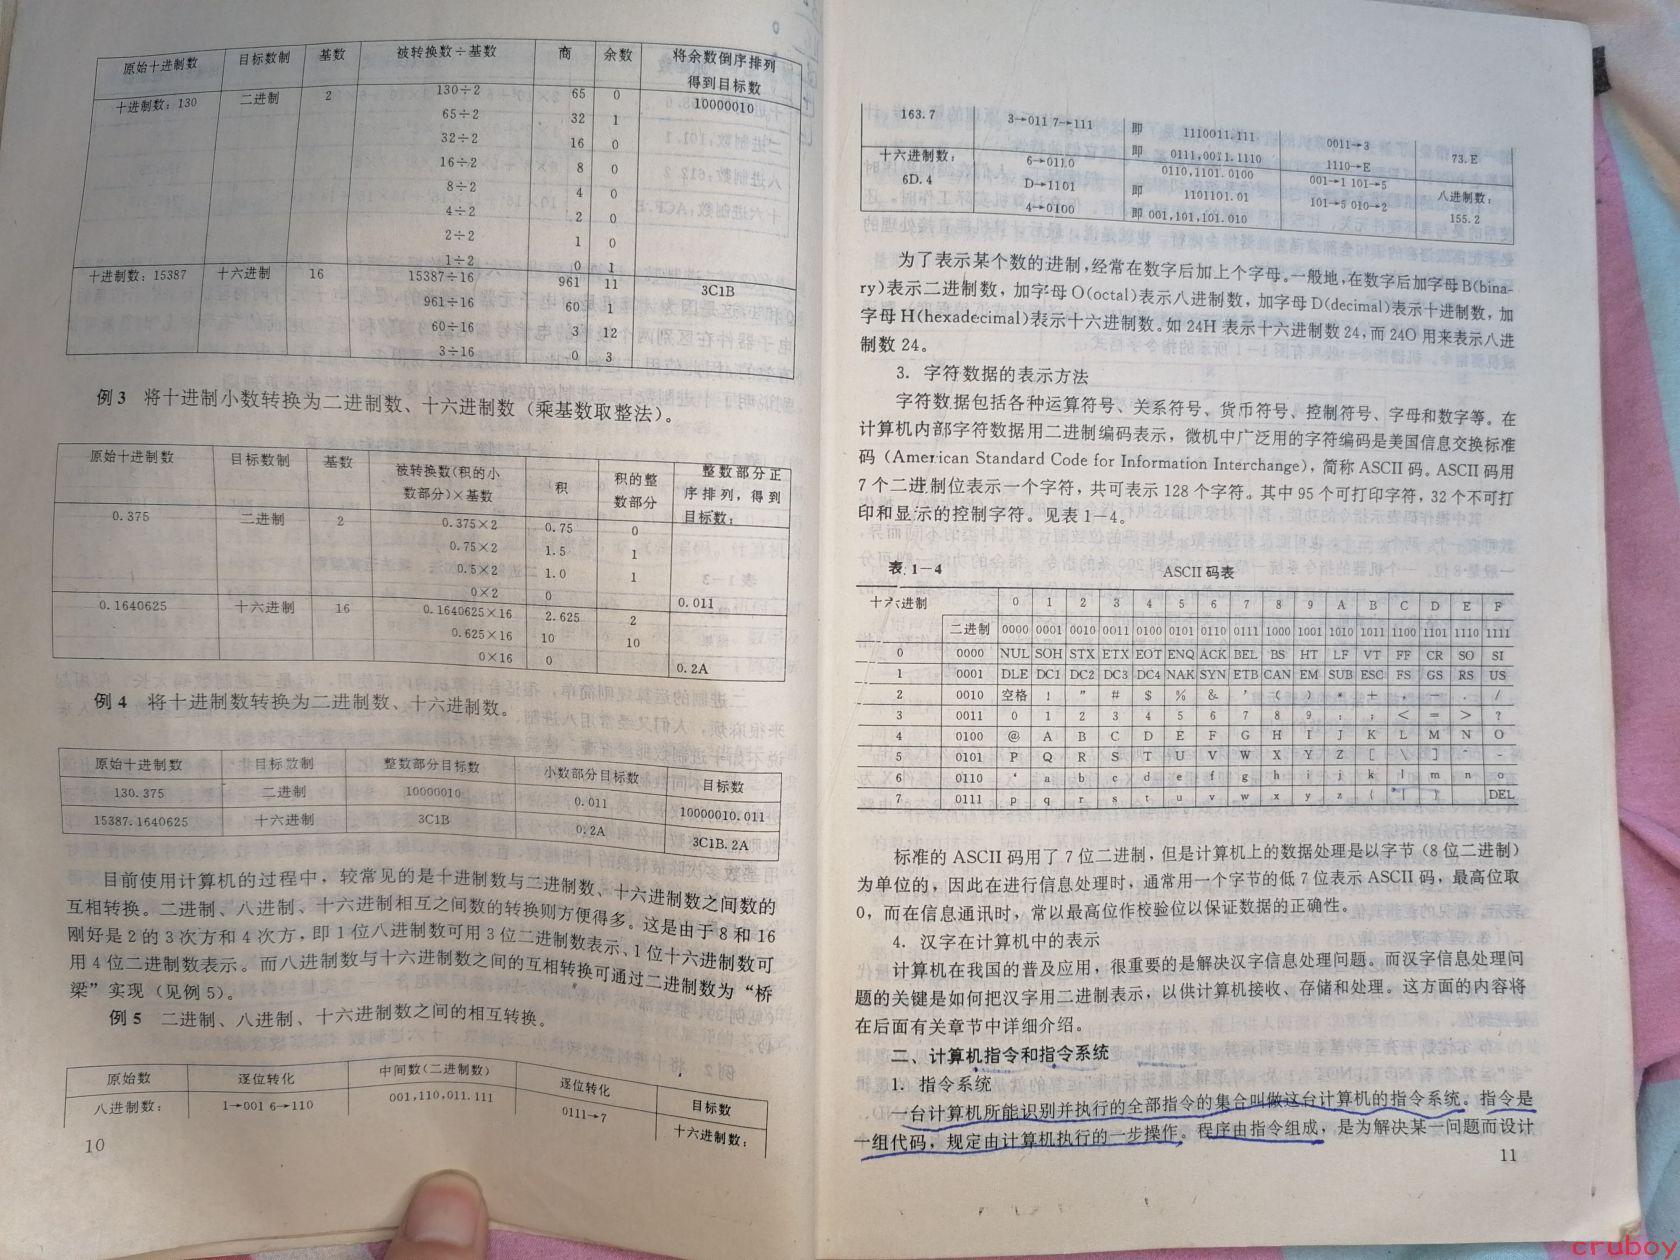 原始十进制数 目标数制 基数 被转换数÷基数 商 余数 将余数倒序排列
得到目标数
十进制数：130 二进制 2 130÷2 65 0 10000010
65÷2 32 1
32÷2 16 0
16÷2 8 0
8÷2 4 0
4÷2 2 0
2÷2 1 0
1÷2 0 1
十进制数：15387 十六进制 16 15387÷16 961 11 3C1B
961÷16 60 1
60÷16 3 12
3÷16 0 3
例3 将十进制小数转换为二进制数、十六进制数（乘基数取整法）。
原始十进制数 目标数制 基数 被转换数(积的小 积 积的整 整数部分正
数部分)×基数 数部分 序排列，得到
目标数：
0.375 二进制 2 0.375×2 0.75 0
0.75×2 1.5 1
0.5×2 1.0 1
0×2 0 0.011
0.1640625 十六进制 16 0.1640625×16 2.625 2
0.625×16 10 10
0×16 0 0.2A
例4 将十进制数转换为二进制数、十六进制数。
原始十进制数 目标数制 整数部分目标数 小数部分目标数 目标数
130.375 二进制 10000010 0.011 10000010.011
15387.1640625 十六进制 3C1B 0.2A 3C1B.2A
目前使用计算机的过程中，较常见的是十进制数与二进制数、十六进制数之间数的
互相转换。二进制、八进制、十六进制相互之间数的转换则方便得多。这是由于8和16
刚好是2的3次方和4次方，即1位八进制数可用3位二进制数表示、1位十六进制数可
用4位二进制数表示。而八进制数与十六进制数之间的互相转换可通过二进制数为“桥
梁”实现（见例5）。
例5 二进制、八进制、十六进制数之间的相互转换。
原始数 逐位转化 中间数(二进制数) 逐位转化 目标数
八进制数： 1→001 6→110 001,110,011.111 0111→7 十六进制数：
10
163.7 3→011 7→111 即 1110011.111 0011→3 73.E
即 0111,0011.1110 1110→E
十六进制数： 6→0110 0110,1101.0100 001→1 101→5 八进制数：
6D.4 D→1101 即 1101101.01 101→5 010→2 155.2
4→0100 即 001,101,101.010
为了表示某个数的进制，经常在数字后加上个字母。一般地，在数字后加字母B(bina-
ry)表示二进制数，加字母O(octal)表示八进制数，加字母D(decimal)表示十进制数，加
字母H(hexadecimal)表示十六进制数。如24H表示十六进制数24，而24O用来表示八进
制数24。
3. 字符数据的表示方法
字符数据包括各种运算符号、关系符号、货币符号、控制符号、字母和数字等。在
计算机内部字符数据用二进制编码表示，微机中广泛用的字符编码是美国信息交换标准
码（American Standard Code for Information Interchange），简称ASCII码。ASCII码用
7个二进制位表示一个字符，共可表示128个字符。其中95个可打印字符，32个不可打
印和显示的控制字符。见表1—4。
表1—4 ASCII码表
十六进制 0 1 2 3 4 5 6 7 8 9 A B C D E F
二进制 0000 0001 0010 0011 0100 0101 0110 0111 1000 1001 1010 1011 1100 1101 1110 1111
0 0000 NUL SOH STX ETX EOT ENQ ACK BEL BS HT LF VT FF CR SO SI
1 0001 DLE DC1 DC2 DC3 DC4 NAK SYN ETB CAN EM SUB ESC FS GS RS US
2 0010 空格 ! " # $ % & ' ( ) * + , - . /
3 0011 0 1 2 3 4 5 6 7 8 9 : ; < = > ?
4 0100 @ A B C D E F G H I J K L M N O
5 0101 P Q R S T U V W X Y Z [ \ ] ^ -
6 0110 ‘ a b c d e f g h i j k l m n o
7 0111 p q r s t u v w x y z { | } DEL
标准的ASCII码用了7位二进制，但是计算机上的数据处理是以字节（8位二进制）
为单位的，因此在进行信息处理时，通常用一个字节的低7位表示ASCII码，最高位取
0，而在信息通讯时，常以最高位作校验位以保证数据的正确性。
4. 汉字在计算机中的表示
计算机在我国的普及应用，很重要的是解决汉字信息处理问题。而汉字信息处理问
题的关键是如何把汉字用二进制表示，以供计算机接收、存储和处理。这方面的内容将
在后面有关章节中详细介绍。
二、计算机指令和指令系统
1. 指令系统
一台计算机所能识别并执行的全部指令的集合叫做这台计算机的指令系统。指令是
一组代码，规定由计算机执行的一步操作。程序由指令组成，是为解决某一问题而设计
11
cruboy